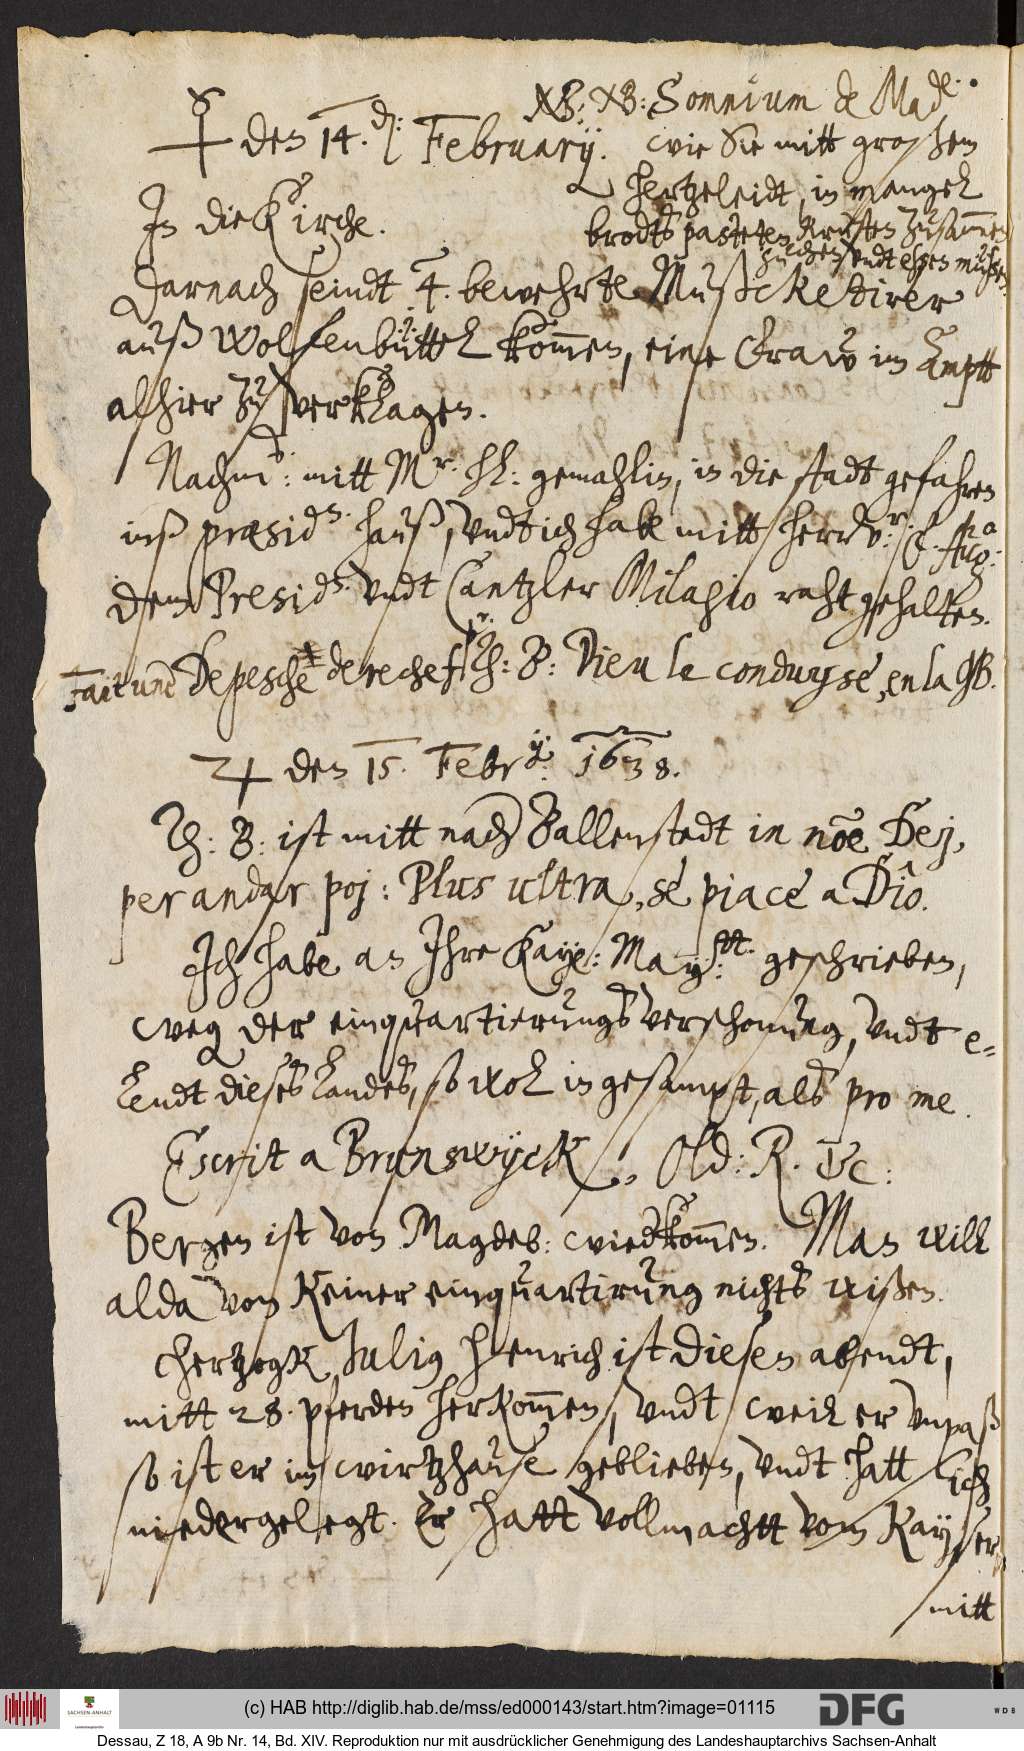 XB: XB: Somnium de Made:
☿ den 14. d: Februarij. wie Sie mitt großem
hertzeleidt, in mangel
In die Kirche.
brodts pasteten Krusten zusammen
suchen, vndt eßen müßen
Darnach seindt 4. bewehrte Mußcketirer
auß Wolfenbüttel kom̄en, eine Fraw im Ampt
alhier zu verklagen.
Nachmd: mitt Mr. hl: gemahlin, in die stadt gefahren
inß præsidn: hauß, vndt ich habe mitt herrv:r F. Aug:
dem Presidn: vndt Cantzler Milagio raht gehalten.
Fait une Depesche derechef Th: B: Dieu le conduyse, en la GB.
♃ den 15. Febrij: 1638.
Th: B: ist mitt nach Ballenstedt in noē Dej,
per andar poj: Plus ultra, se piace a Dio.
Ich habe an Ihre Kay: May:tt. geschrieben,
weg der einquartierungs verschonung, vndt e-
lendt dieses landes, so wol in gesampt, als pro me.
Escrit a Brunswyck, Old: R. &c:
Bergen ist von Magdeb: wiedkom̄en. Man will
alda von Keiner einquartirung nichts wißen.
Hertzogk Julius Henrich ist diesen abendt,
mitt 28. pferden herkom̄en, vndt weil er vnpaß
so ist er im wirtzhause geblieben, vndt hatt sich
niedergelegt. Er hatt vollmachtt vom Kayser,
mitt
(c) HAB http://diglib.hab.de/mss/ed000143/start.htm?image=01115
SACHSEN-ANHALT
DFG
WDB
Dessau, Z 18, A 9b Nr. 14, Bd. XIV. Reproduktion nur mit ausdrücklicher Genehmigung des Landeshauptarchivs Sachsen-Anhalt